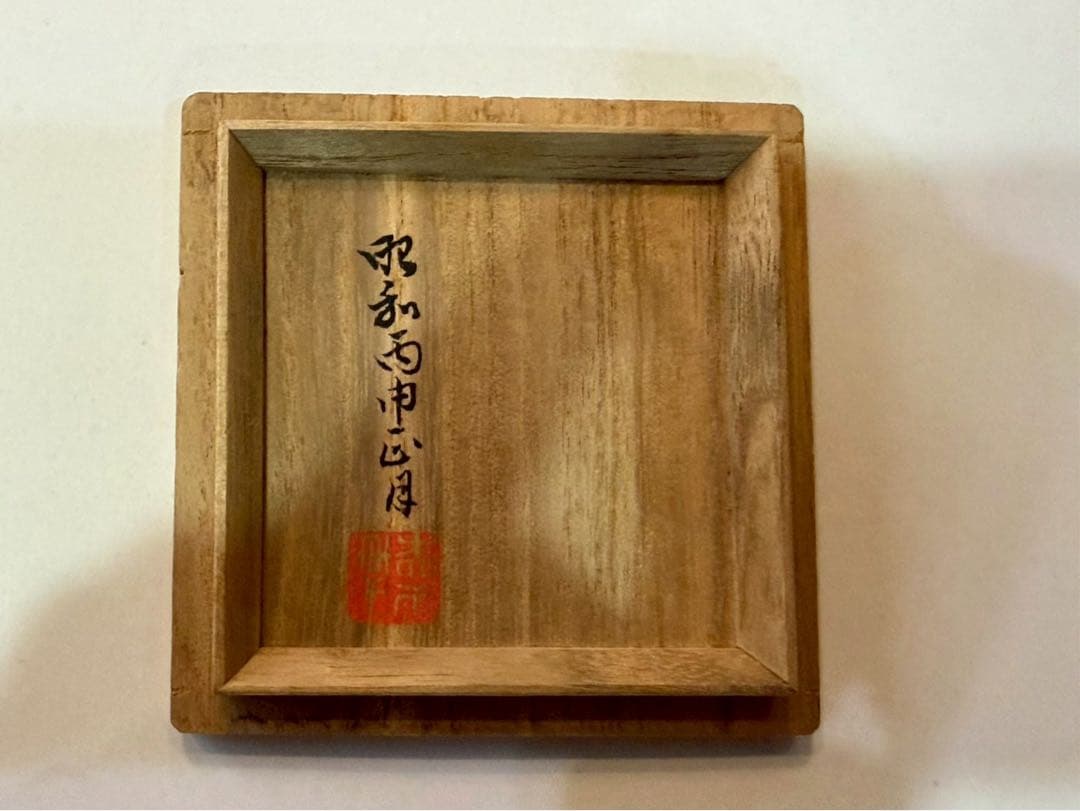 昭和丙申正月